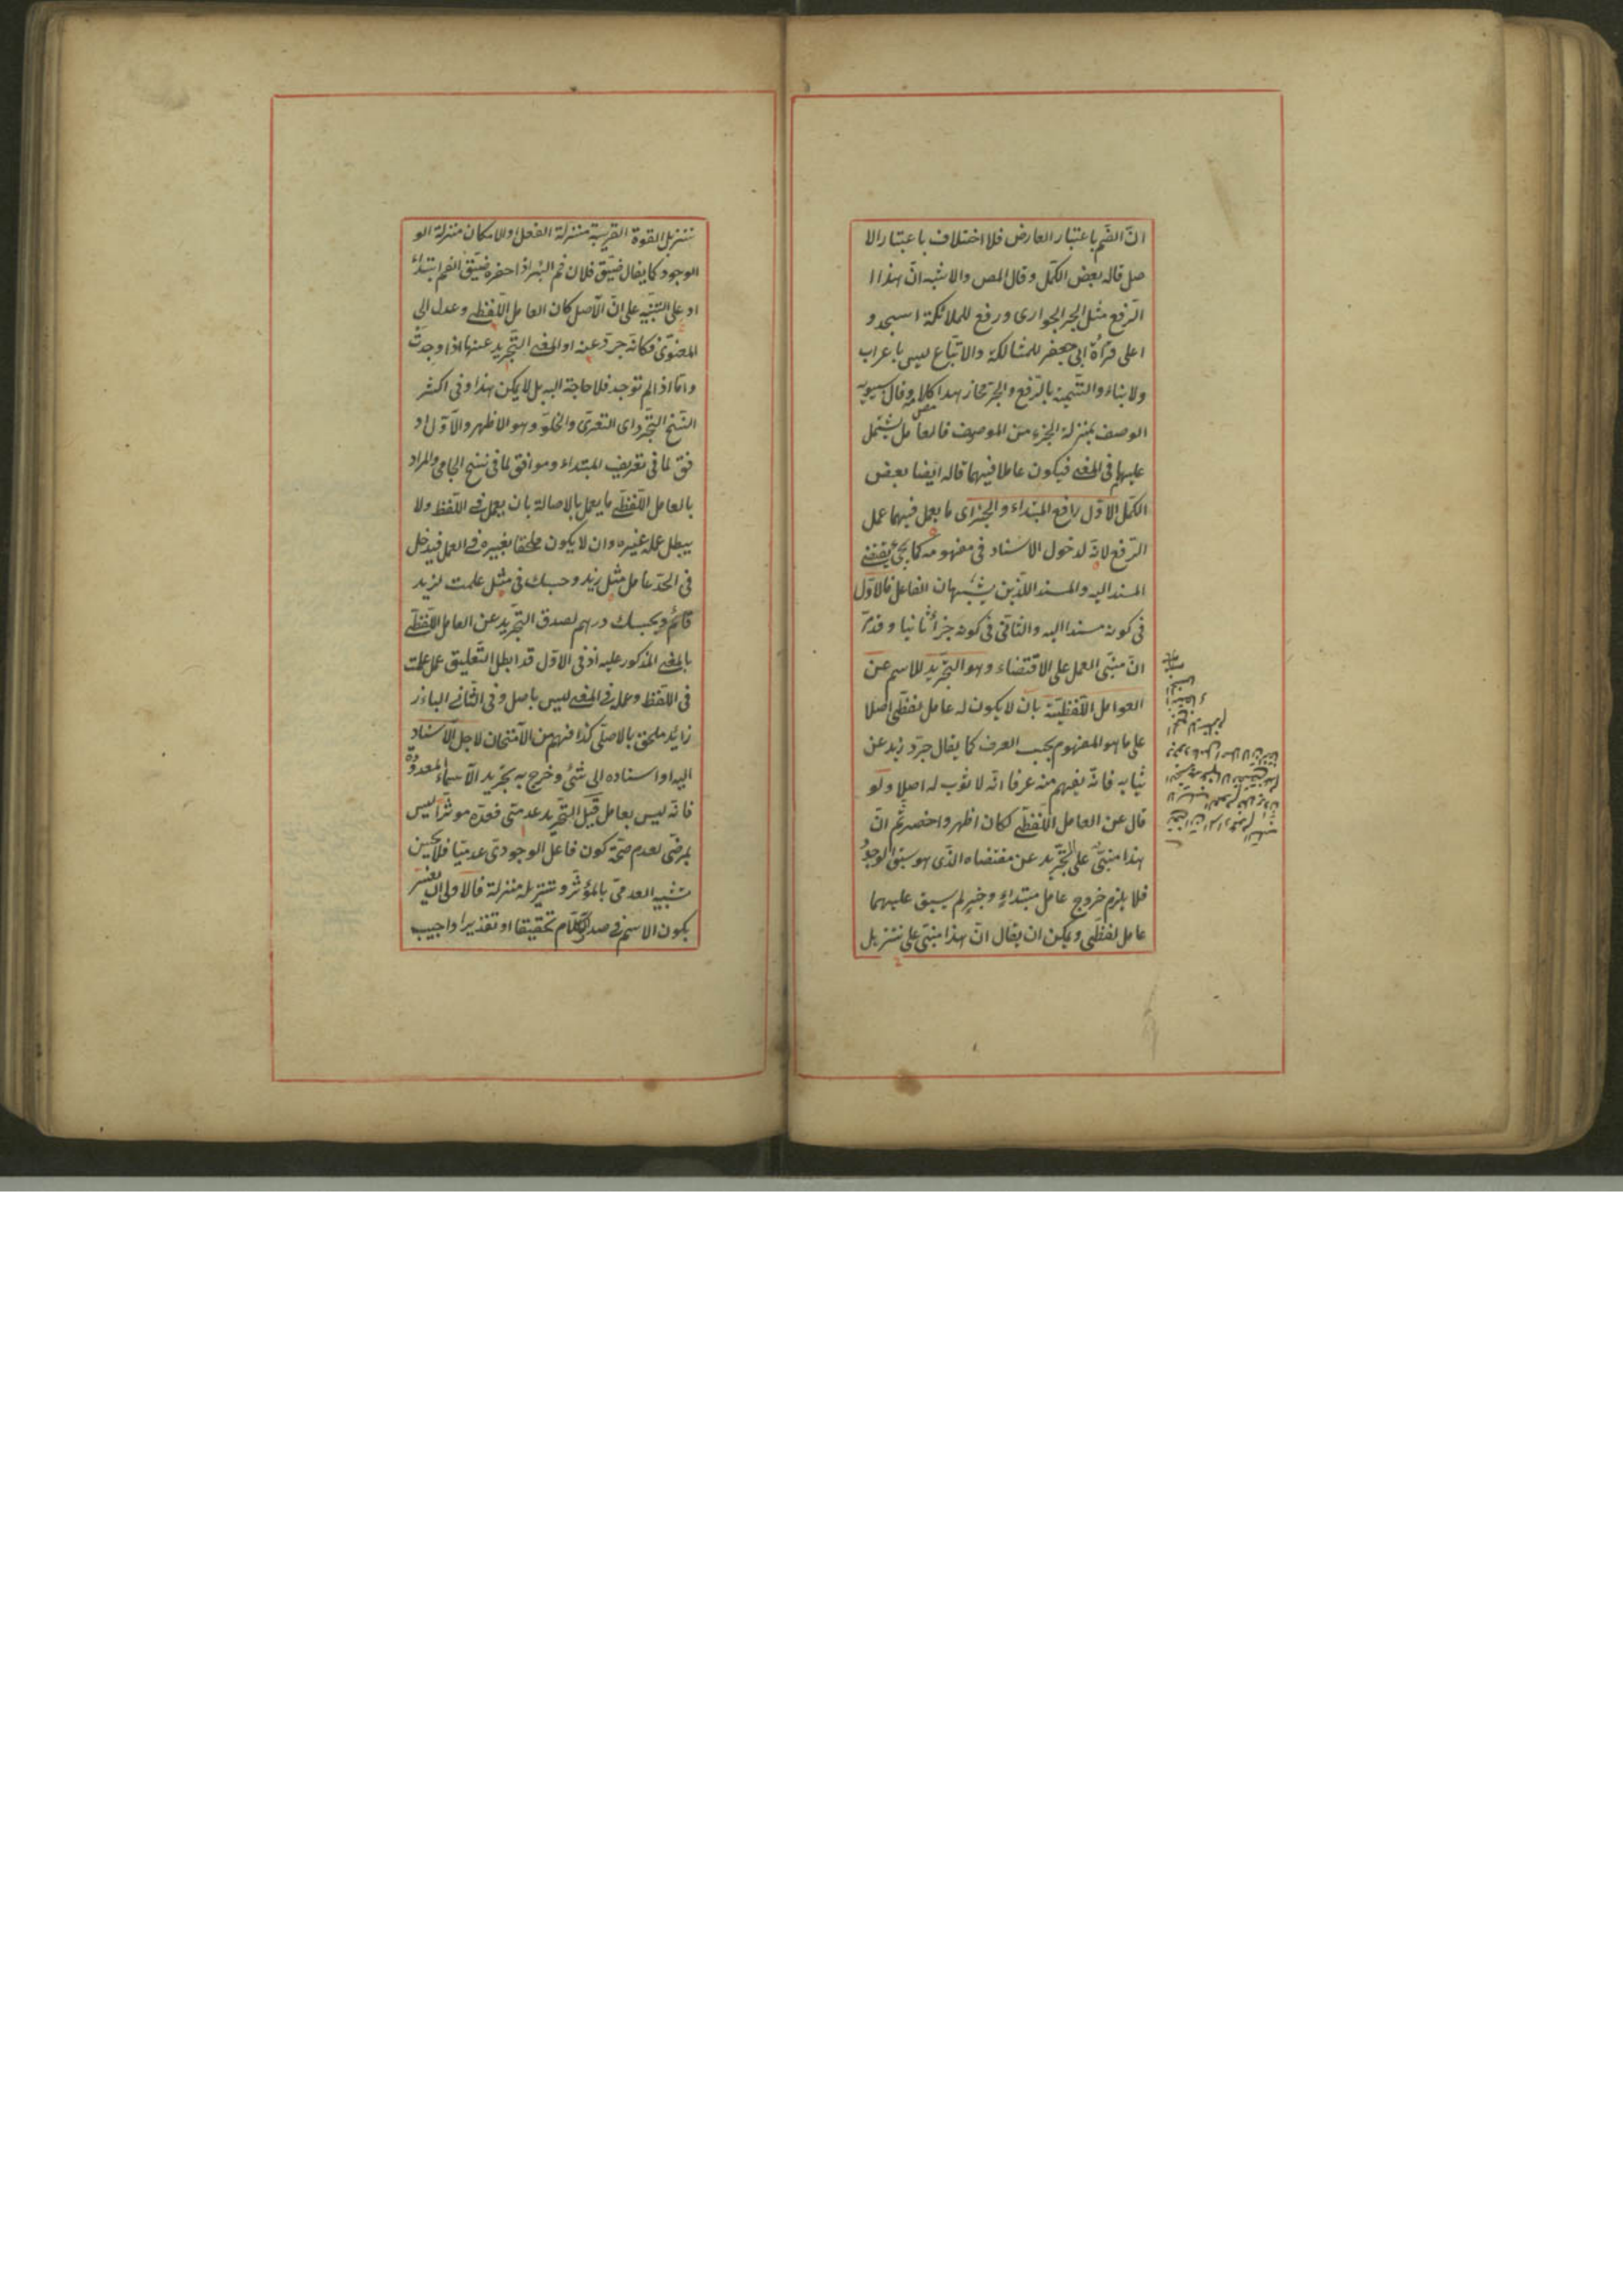 انّ الضّم باعتبار العارض فلا اختلاف باعتبار الا
صل قاله بعض الكمّل وقال المص والاشبه انّ هذا ا
الرّفع مثل الجر الجوارى ورفع للملائكة اسجدو
اعلى قراءة ابى جعفر للمشاكلة والاتّباع ليس باعراب
ولا بناء والتّسمية بالرّفع والجرّ مجاز هذا كلامه وقال سيبويه
الوصف بمنزلة الجزء من الموصوف فالعامل يشتمل
عليهما فى المعنى فيكون عاملا فيهما قاله ايضا بعض
الكمّل الاوّل رافع المبتداء والخبر اى ما يعمل فيهما عمل
الرّفع لانّه لدخول الاسناد فى مفهومه كما يجئ يقتضى
المسند اليه والمسند اللّذين يشبهان الفاعل فالاوّل
فى كونه مسندا اليه والثانى فى كونه جزأ ثانيا وقد مرّ
انّ مبنى العمل على الاقتضاء وهو التّجريد للاسم عن
العوامل اللّفظيّة بان لا يكون له عامل لفظى اصلا
على ما هو المفهوم بحسب العرف كما يقال جرّد زيد عن
ثيابه فانّه يفهم منه عرفا انّه لا ثوب له اصلا ولو
قال عن العامل اللّفظى لكان اظهر واخصر ثم انّ
هذا مبنىّ على التّجريد عن مقتضاه الّذى هو سبق الوجود
فلا يلزم خروج عامل مبتداء وخبر لم يسبق عليهما
عامل لفظى ويمكن ان يقال انّ هذا مبنى على تنزيل
تنزيل القوة القريبة منزلة الفعل والامكان منزلة الو
الوجود كما يقال ضيّق فلان فم البئر اذا حفره ضيّق الفم ابتداء
او على التّنبيه على انّ الاصل كان العامل اللّفظى وعدل الى
المعنوىّ فكانّه جرّد عنه او المعنى التّجريد عنها اذا وجدت
وامّا اذا لم توجد فلا حاجة اليه بل لا يمكن هذا وفى اكثر
النّسخ التّجرّد اى التعرّى والخلوّ وهو الاظهر والاوّل او
فق لما فى تعريف المبتداء وموافق لما فى نسخ الجامى والمراد
بالعامل اللّفظى ما يعمل بالاصالة بان يعمل فى اللّفظ ولا
يبطل عمله غيره وان لا يكون ملحقا بغيره فى العمل فيدخل
فى الحدّ عامل مثل زيد وحسبك فى مثل علمت لزيد
قائم وبحسبك درهم لصدق التّجريد عن العامل اللّفظى
بالمعنى المذكور عليه اذ فى الاوّل قد ابطل التّعليق عمل علمت
فى اللّفظ وعمله فى المعنى ليس باصل وفى الثّانى الباء زا
زائد ملحق بالاصلى كذا فهم من الامتحان لاجل الاسناد
اليه او اسناده الى شئ وخرج به تجريد الاسماء المعدودة
فانّه ليس بعامل قيل التّجريد عدمىّ فعدّه موثرا ليس
بمرضىّ لعدم صحّة كون فاعل الوجودى عدميّا فلا يحسن
تشبيه العدمىّ بالمؤثّر وتنزيله منزلة فالاولى ان يفسّر
بكون الاسم فى صدر الكلام تحقيقا او تقديرا واجيب